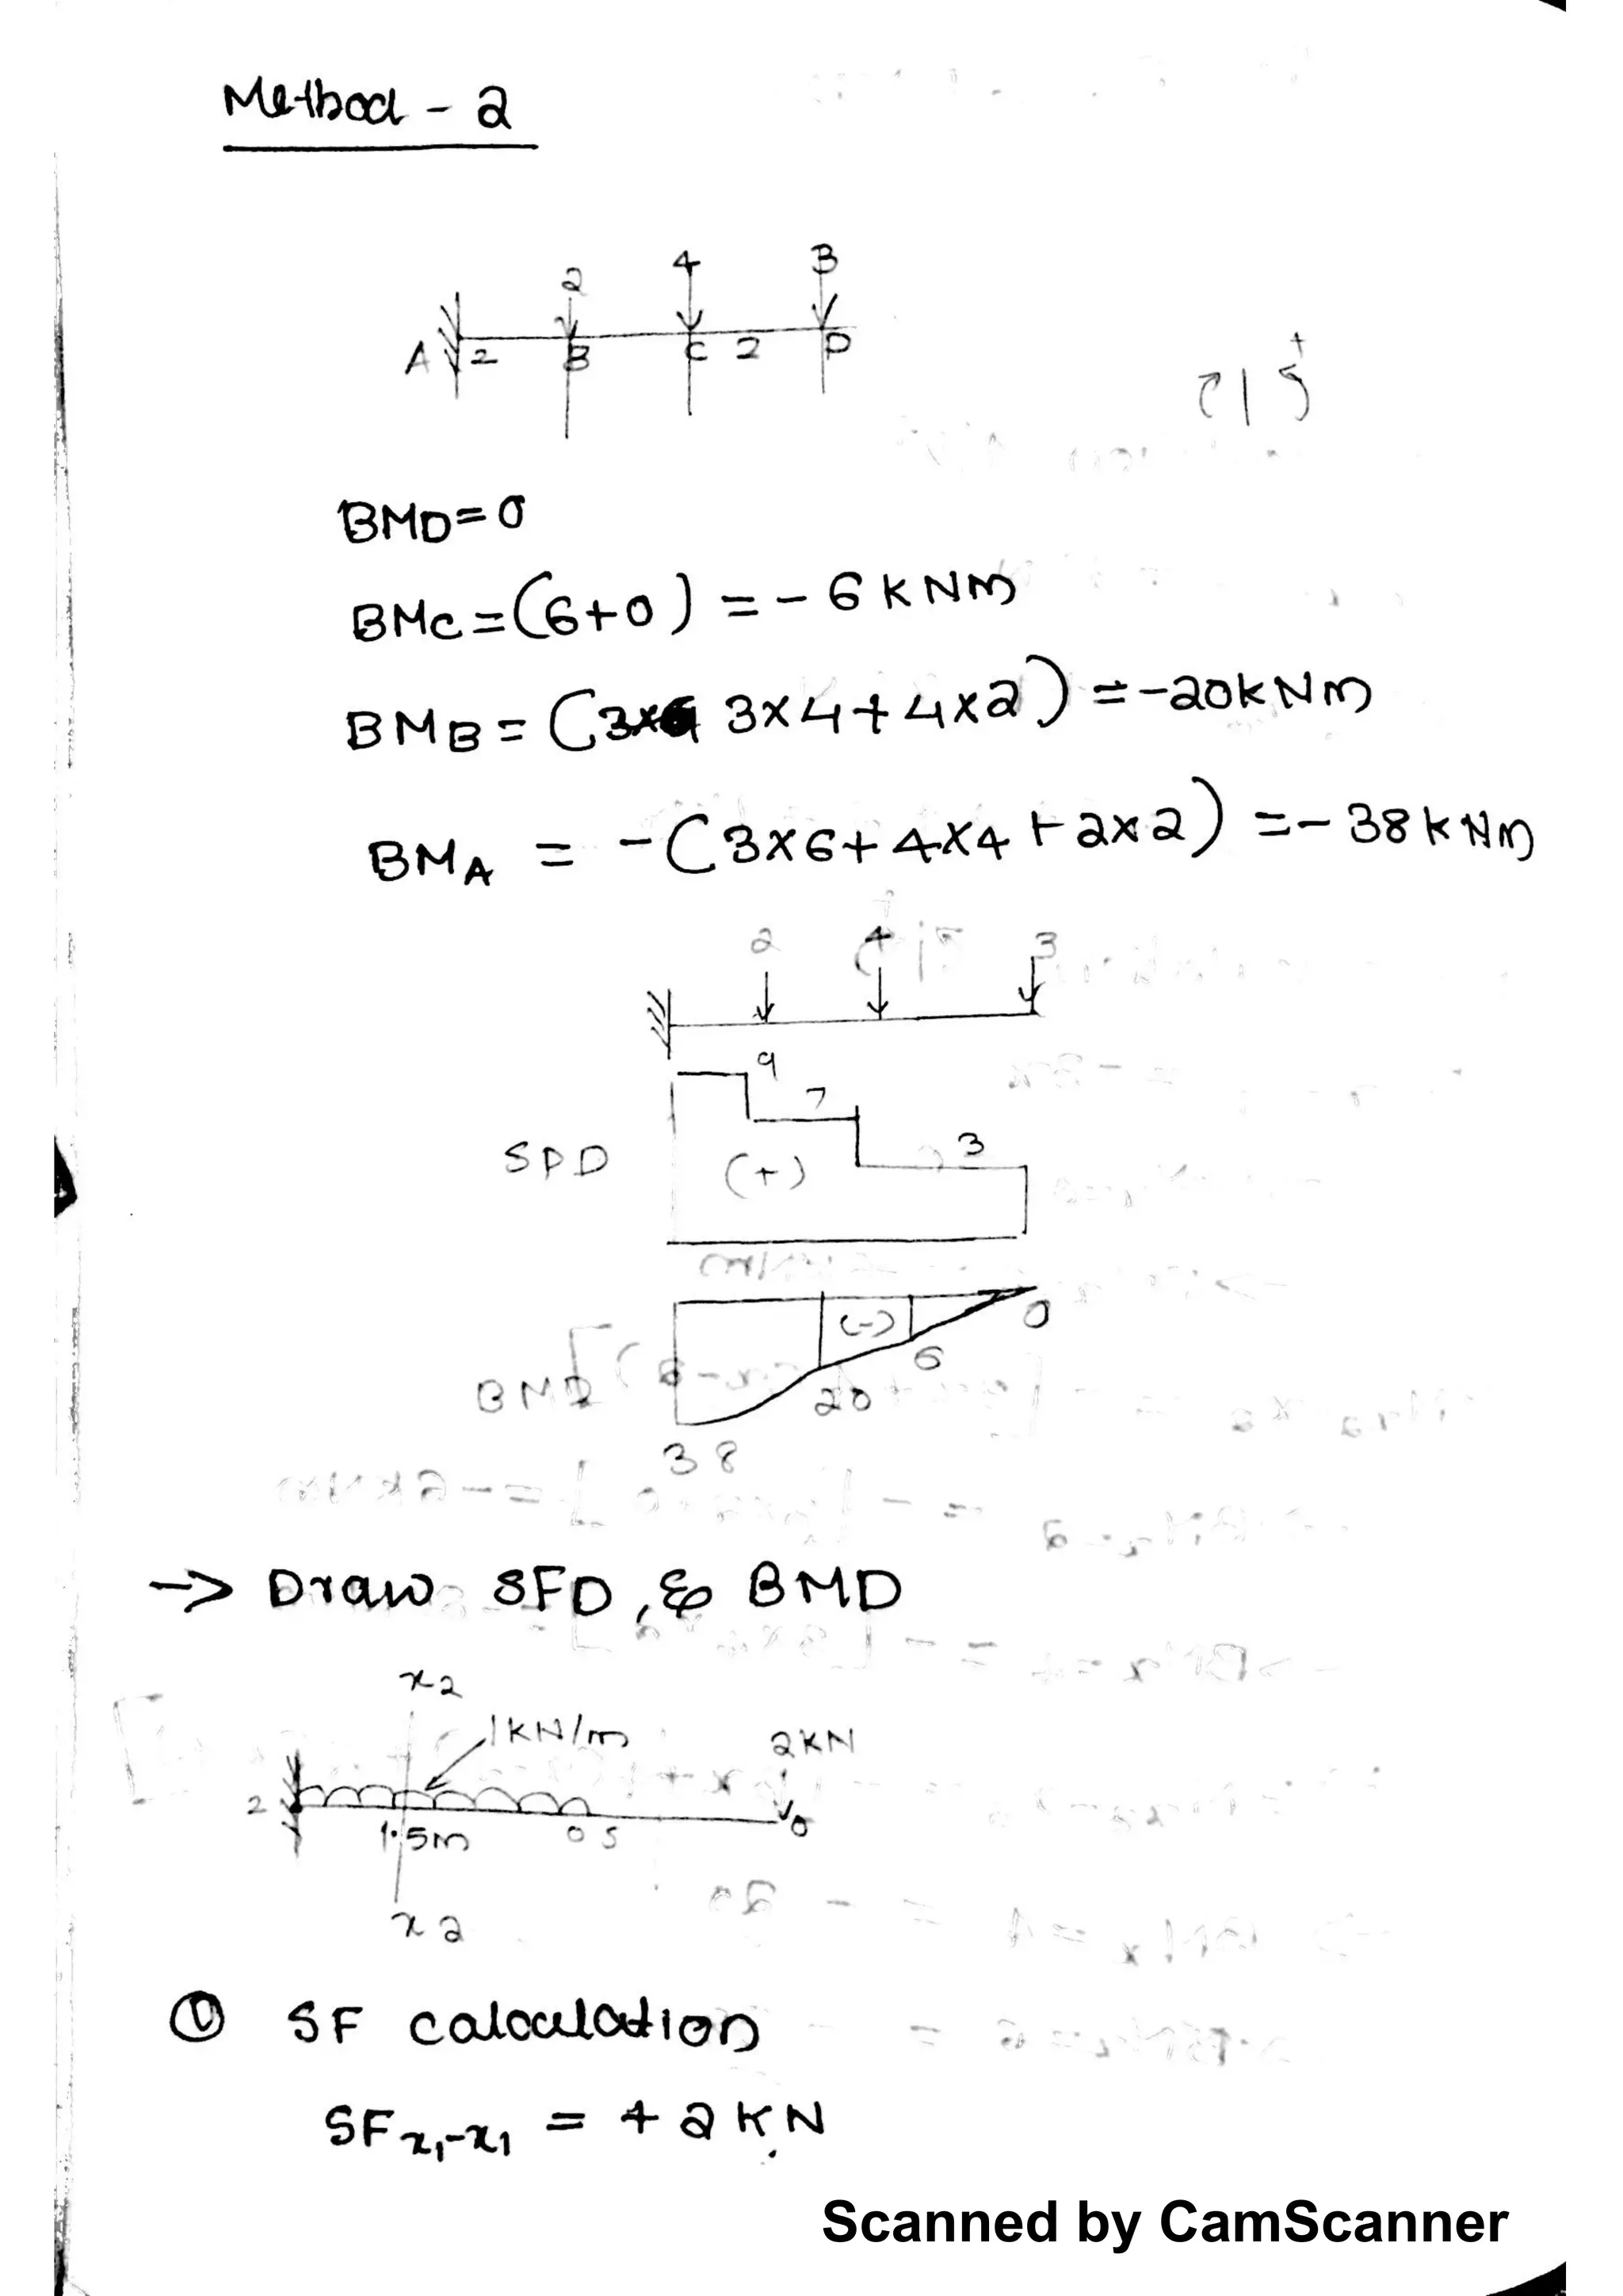 Method - 2
2 4 3
A 2 B C 2 D
+
BMD=0
BMC=(6+0) = - 6 KNm
BMB = ( 3x4+4x2) = -20KNm
BMA = -(3x6+4x4+2x2) = - 38KNm
2 4 3
9
7
3
SPD (+)
(-) 0
6
BMD 20
38
-> Draw SFD, & BMD
x2
1KN/m 2KN
2 1.5m 0 5 0
x2
① SF calculation
SF x1-x1 = + 2 KN
Scanned by CamScanner